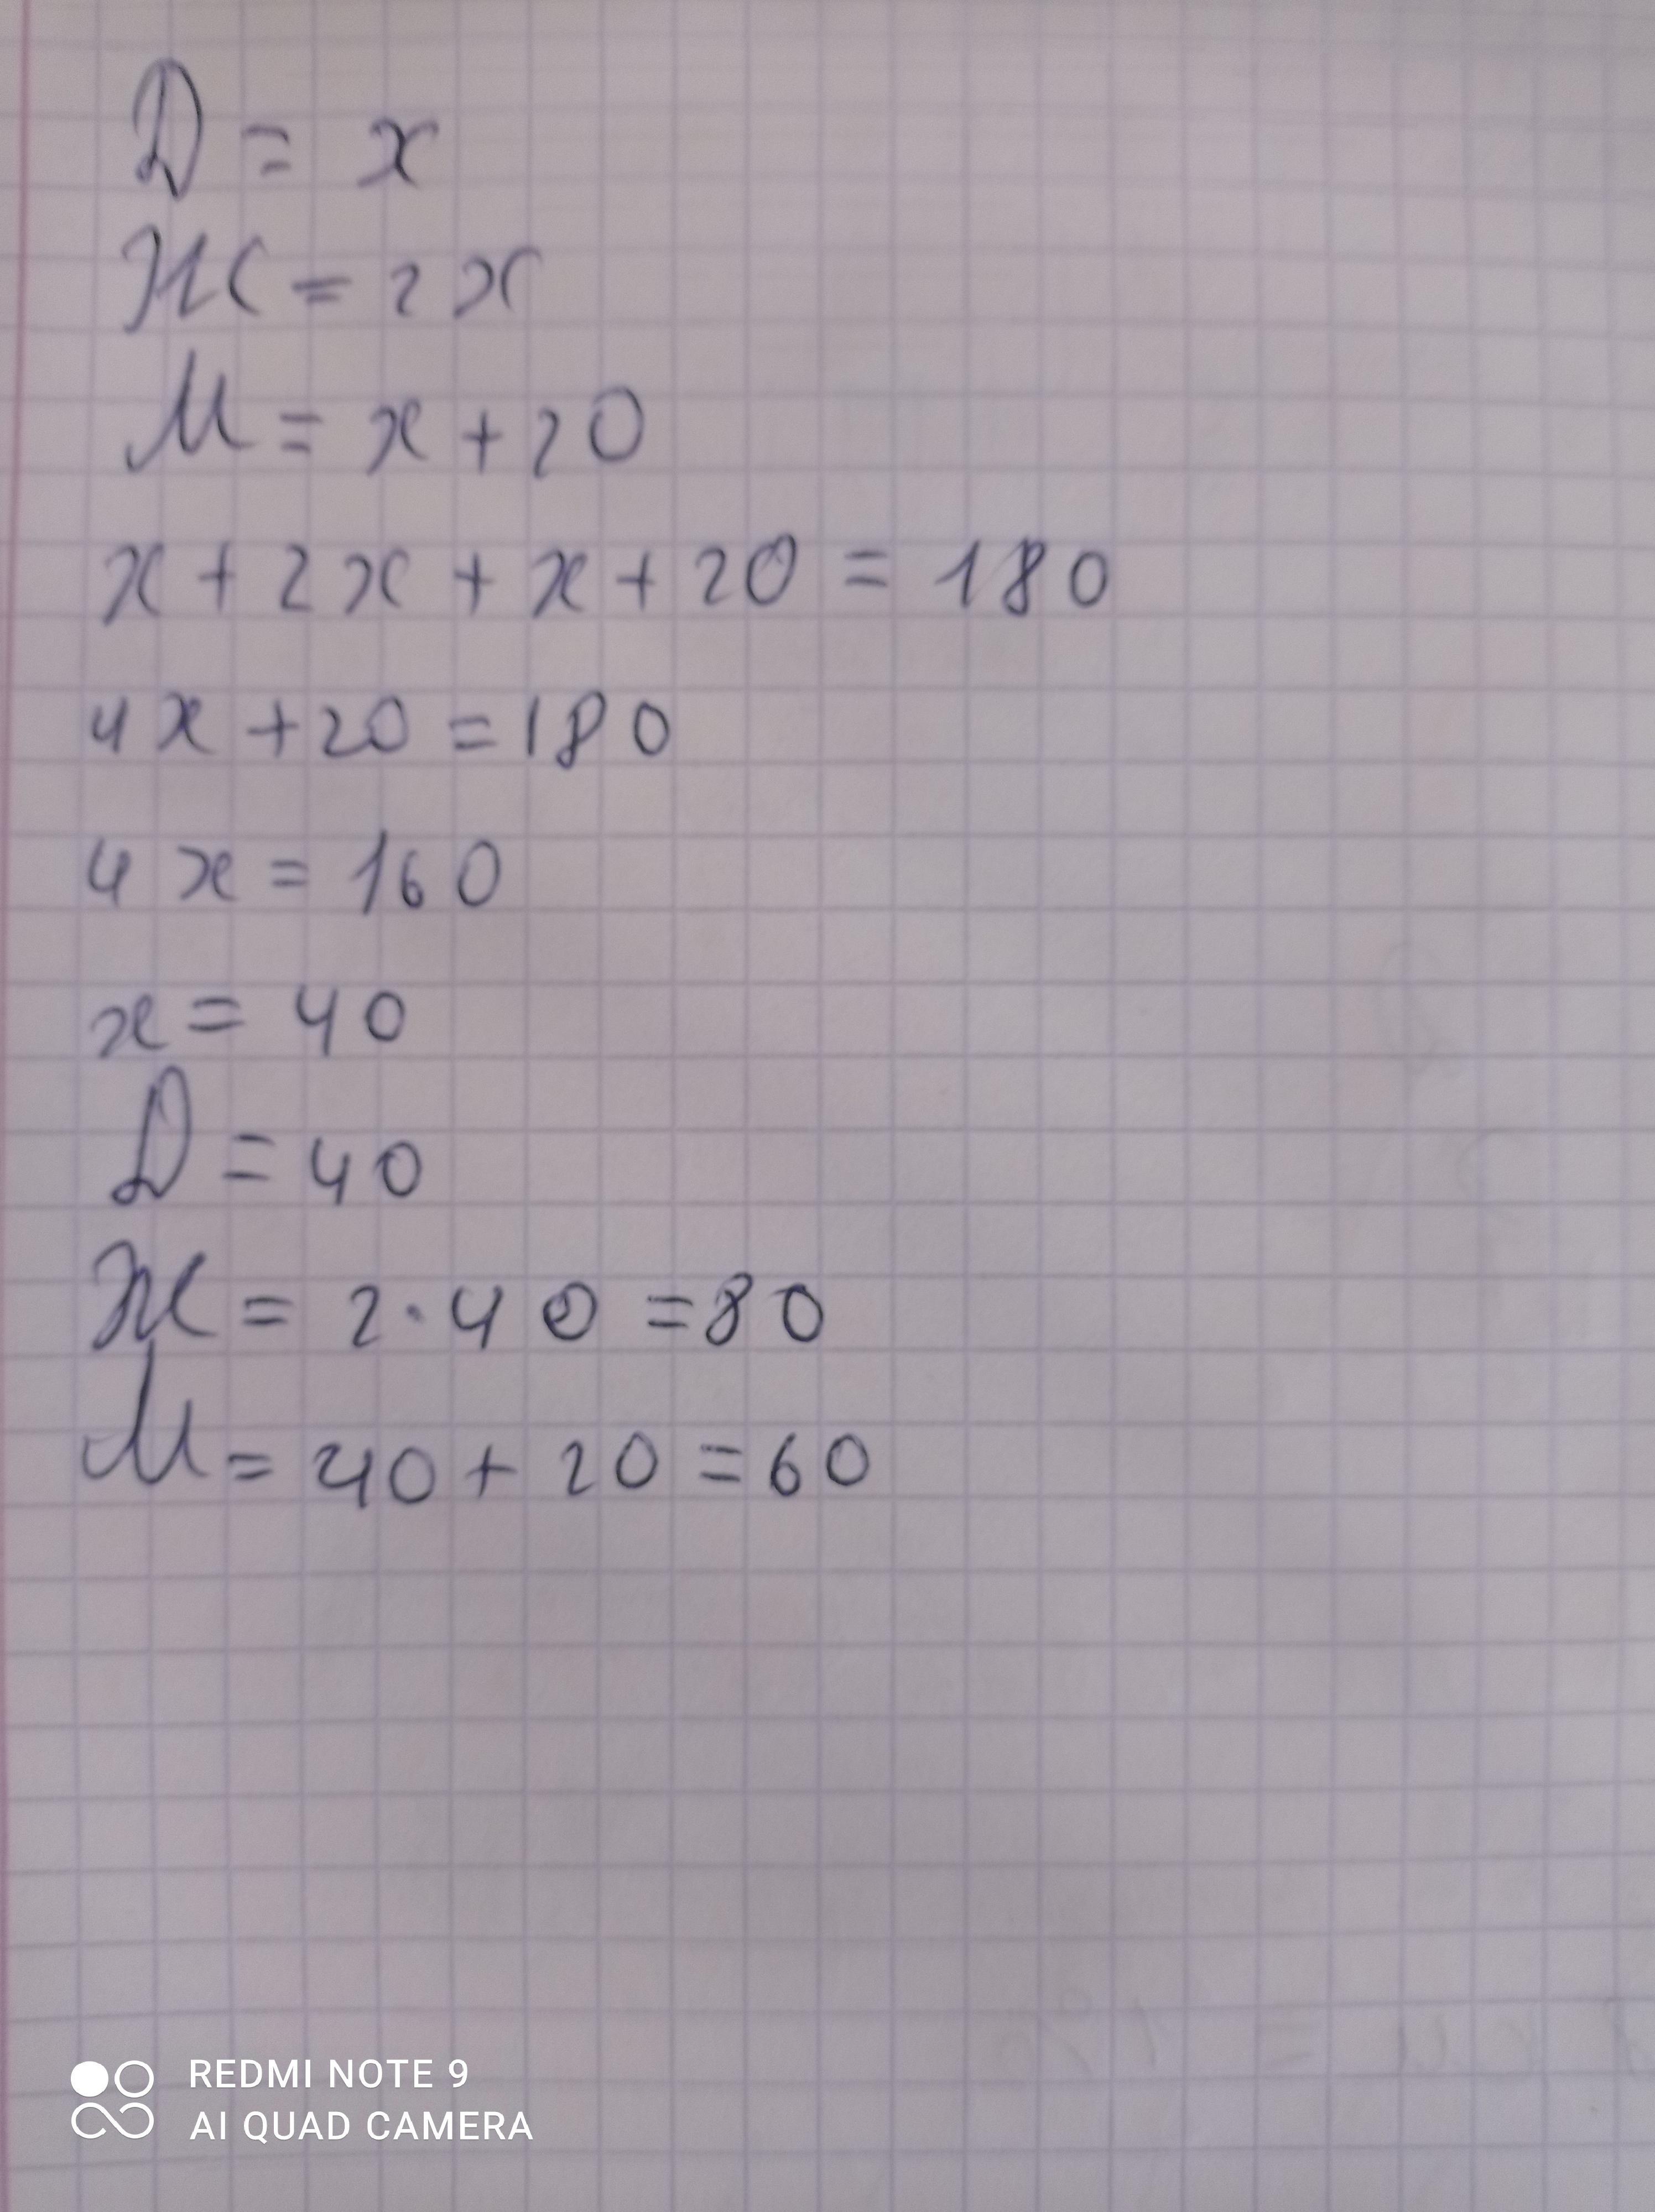 Д = x
Ж = 2x
М = x + 20
x + 2x + x + 20 = 180
4x + 20 = 180
4x = 160
x = 40
Д = 40
Ж = 2·40 = 80
М = 40 + 20 = 60
REDMI NOTE 9
AI QUAD CAMERA